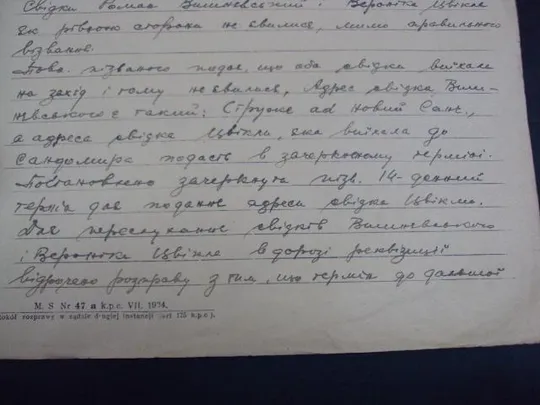 Свідки Роман Вишневський і Вероніка Цвікле
як рівнож сторони не явилися, мимо правильного
візвання.
Пов. пізваного подає, що оба свідки виїхали
на захід і тому не явились, Адрес свідка Виш-
невського є такий: Струже ad Новий Санч,
а адреса свідка Цвікли, яка виїхала до
Сандомира подасть в зачеркненому терміні.
Постановлено зачеркнути пізв. 14-денний
термін для подання адреси свідка Цвікле.
Для переслухання свідків Вишневського
і Вероніки Цвікле в дорозі реквізиції
відрочено розправу з тим, що термін до дальшої
M. S Nr 47 a k.p.c. VII. 1934.
okół rozprawy w sądzie drugiej instancji (art 175 k.p.c.).